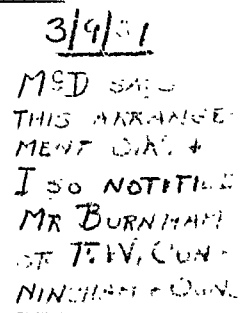 3/9/51
McD SAYS
THIS ARRANGE-
MENT O.K. +
I SO NOTIFIED
MR BURNHAM
OF T.W. CUN-
NINGHAM +